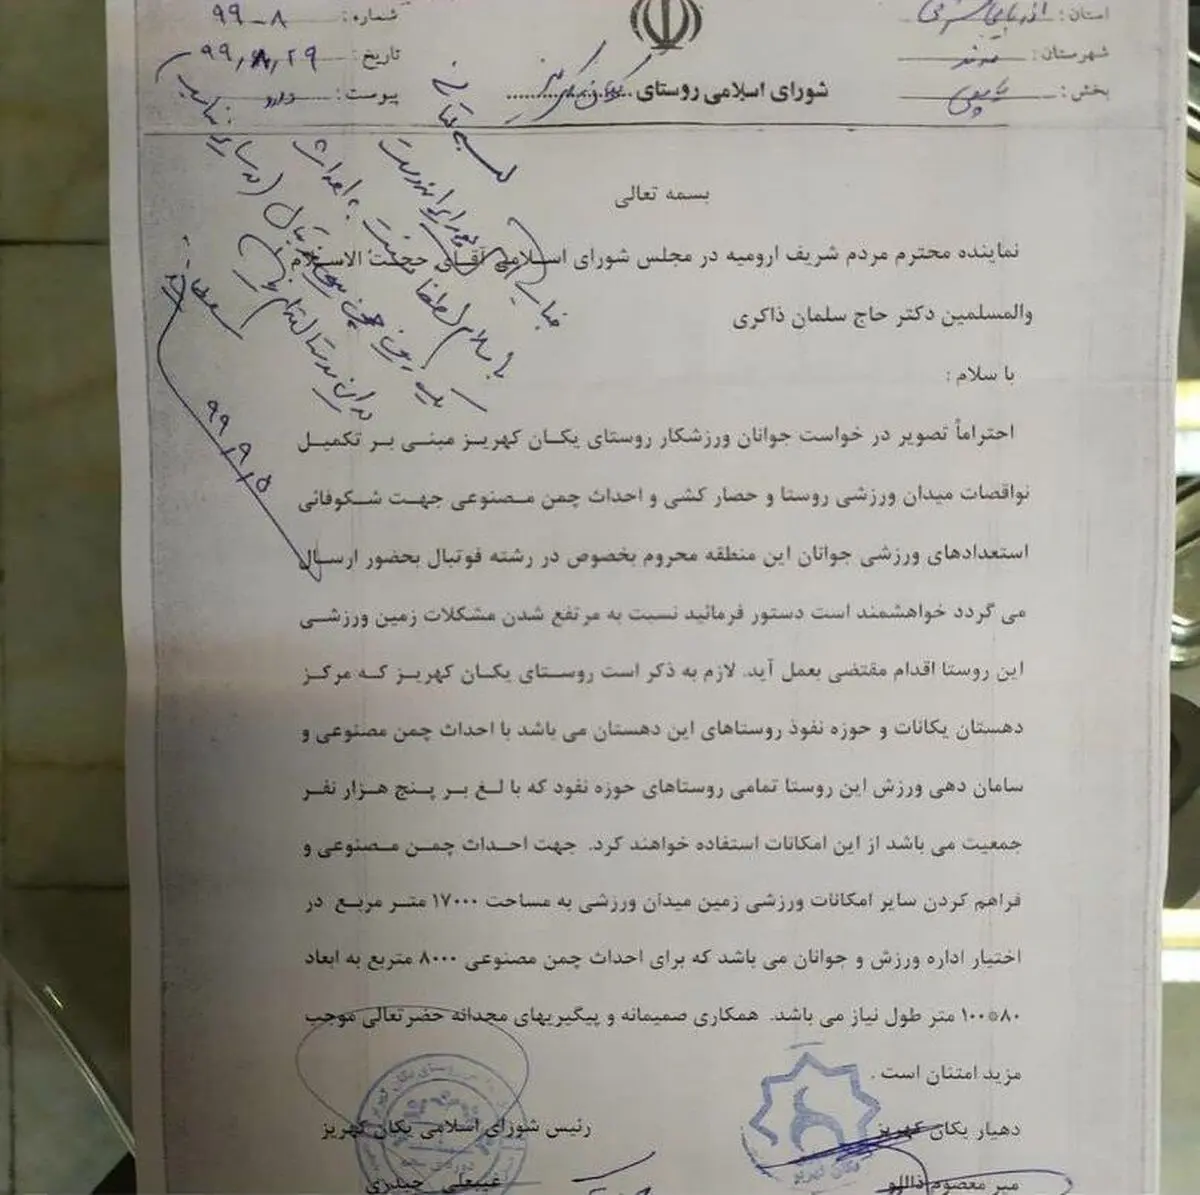 استان: آذربایجان شرقی
شهرستان: مرند
بخش: یامچی
شورای اسلامی روستای یکان کهریز
شماره: ۹۹-۸
تاریخ: ۹۹,۸,۲۹
پیوست: دارد
بسمه تعالی
نماینده محترم مردم شریف ارومیه در مجلس شورای اسلامی آقای حجت الاسلام
والمسلمین دکتر حاج سلمان ذاکری
با سلام :
احتراماً تصویر در خواست جوانان ورزشکار روستای یکان کهریز مبنی بر تکمیل
نواقصات میدان ورزشی روستا و حصار کشی و احداث چمن مصنوعی جهت شکوفائی
استعدادهای ورزشی جوانان این منطقه محروم بخصوص در رشته فوتبال بحضور ارسال
می گردد خواهشمند است دستور فرمائید نسبت به مرتفع شدن مشکلات زمین ورزشی
این روستا اقدام مقتضی بعمل آید. لازم به ذکر است روستای یکان کهریز که مرکز
دهستان یکانات و حوزه نفوذ روستاهای این دهستان می باشد با احداث چمن مصنوعی و
سامان دهی ورزش این روستا تمامی روستاهای حوزه نفود که با لغ بر پنج هزار نفر
جمعیت می باشد از این امکانات استفاده خواهند کرد. جهت احداث چمن مصنوعی و
فراهم کردن سایر امکانات ورزشی زمین میدان ورزشی به مساحت ۱۷۰۰۰ متر مربع در
اختیار اداره ورزش و جوانان می باشد که برای احداث چمن مصنوعی ۸۰۰۰ متربع به ابعاد
۸۰*۱۰۰ متر طول نیاز می باشد. همکاری صمیمانه و پیگیریهای مجدانه حضرتعالی موجب
مزید امتنان است .
دهیار یکان کهریز
میر معصوم ذاللو
رئیس شورای اسلامی یکان کهریز
غیبعلی حیدری
بسمه تعالی
با سلام لطفا
۹۹,۹,۵
یکان کهریز